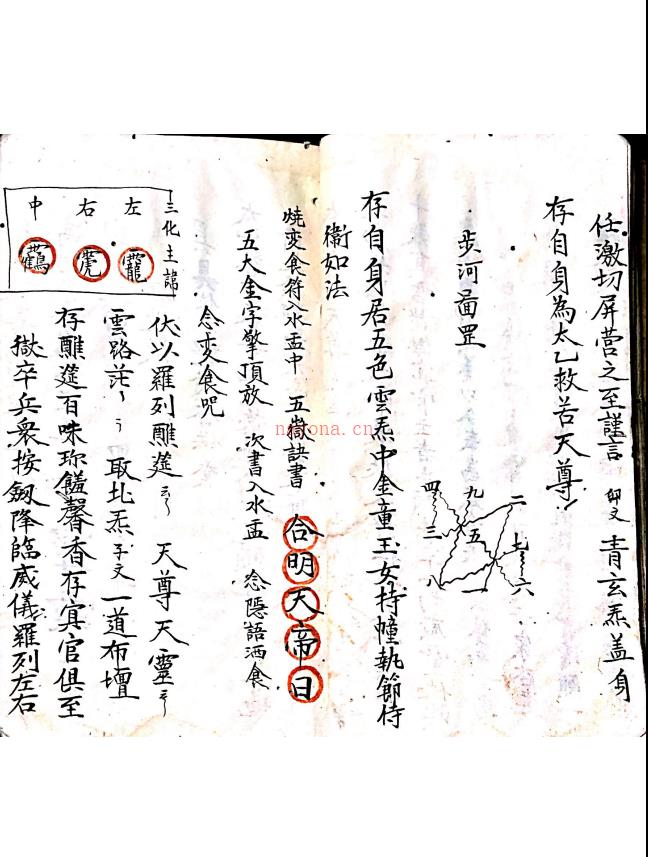 任激切屏营之至謹言 卯文 青玄炁蓋身
存自身為太乙救苦天尊
步河畵罡
四 九 二
三 五 七
八 一 六
存自身居五色雲炁中金童玉女持幢執節侍
衛如法
燒变食符入水盂中 五嶽訣書 合明天帝日
五大金字擎頂放 次書入水盂 念隱語洒食
念变食咒
三化主諱
左
右
中
伏以羅列醮筵 天尊天靈
雲路茫 取北炁子文一道布壇
存醮筵百味珎饈馨香存冥官俱至
嶽卒兵衆按劔降臨威儀羅列左右
nanona.cn